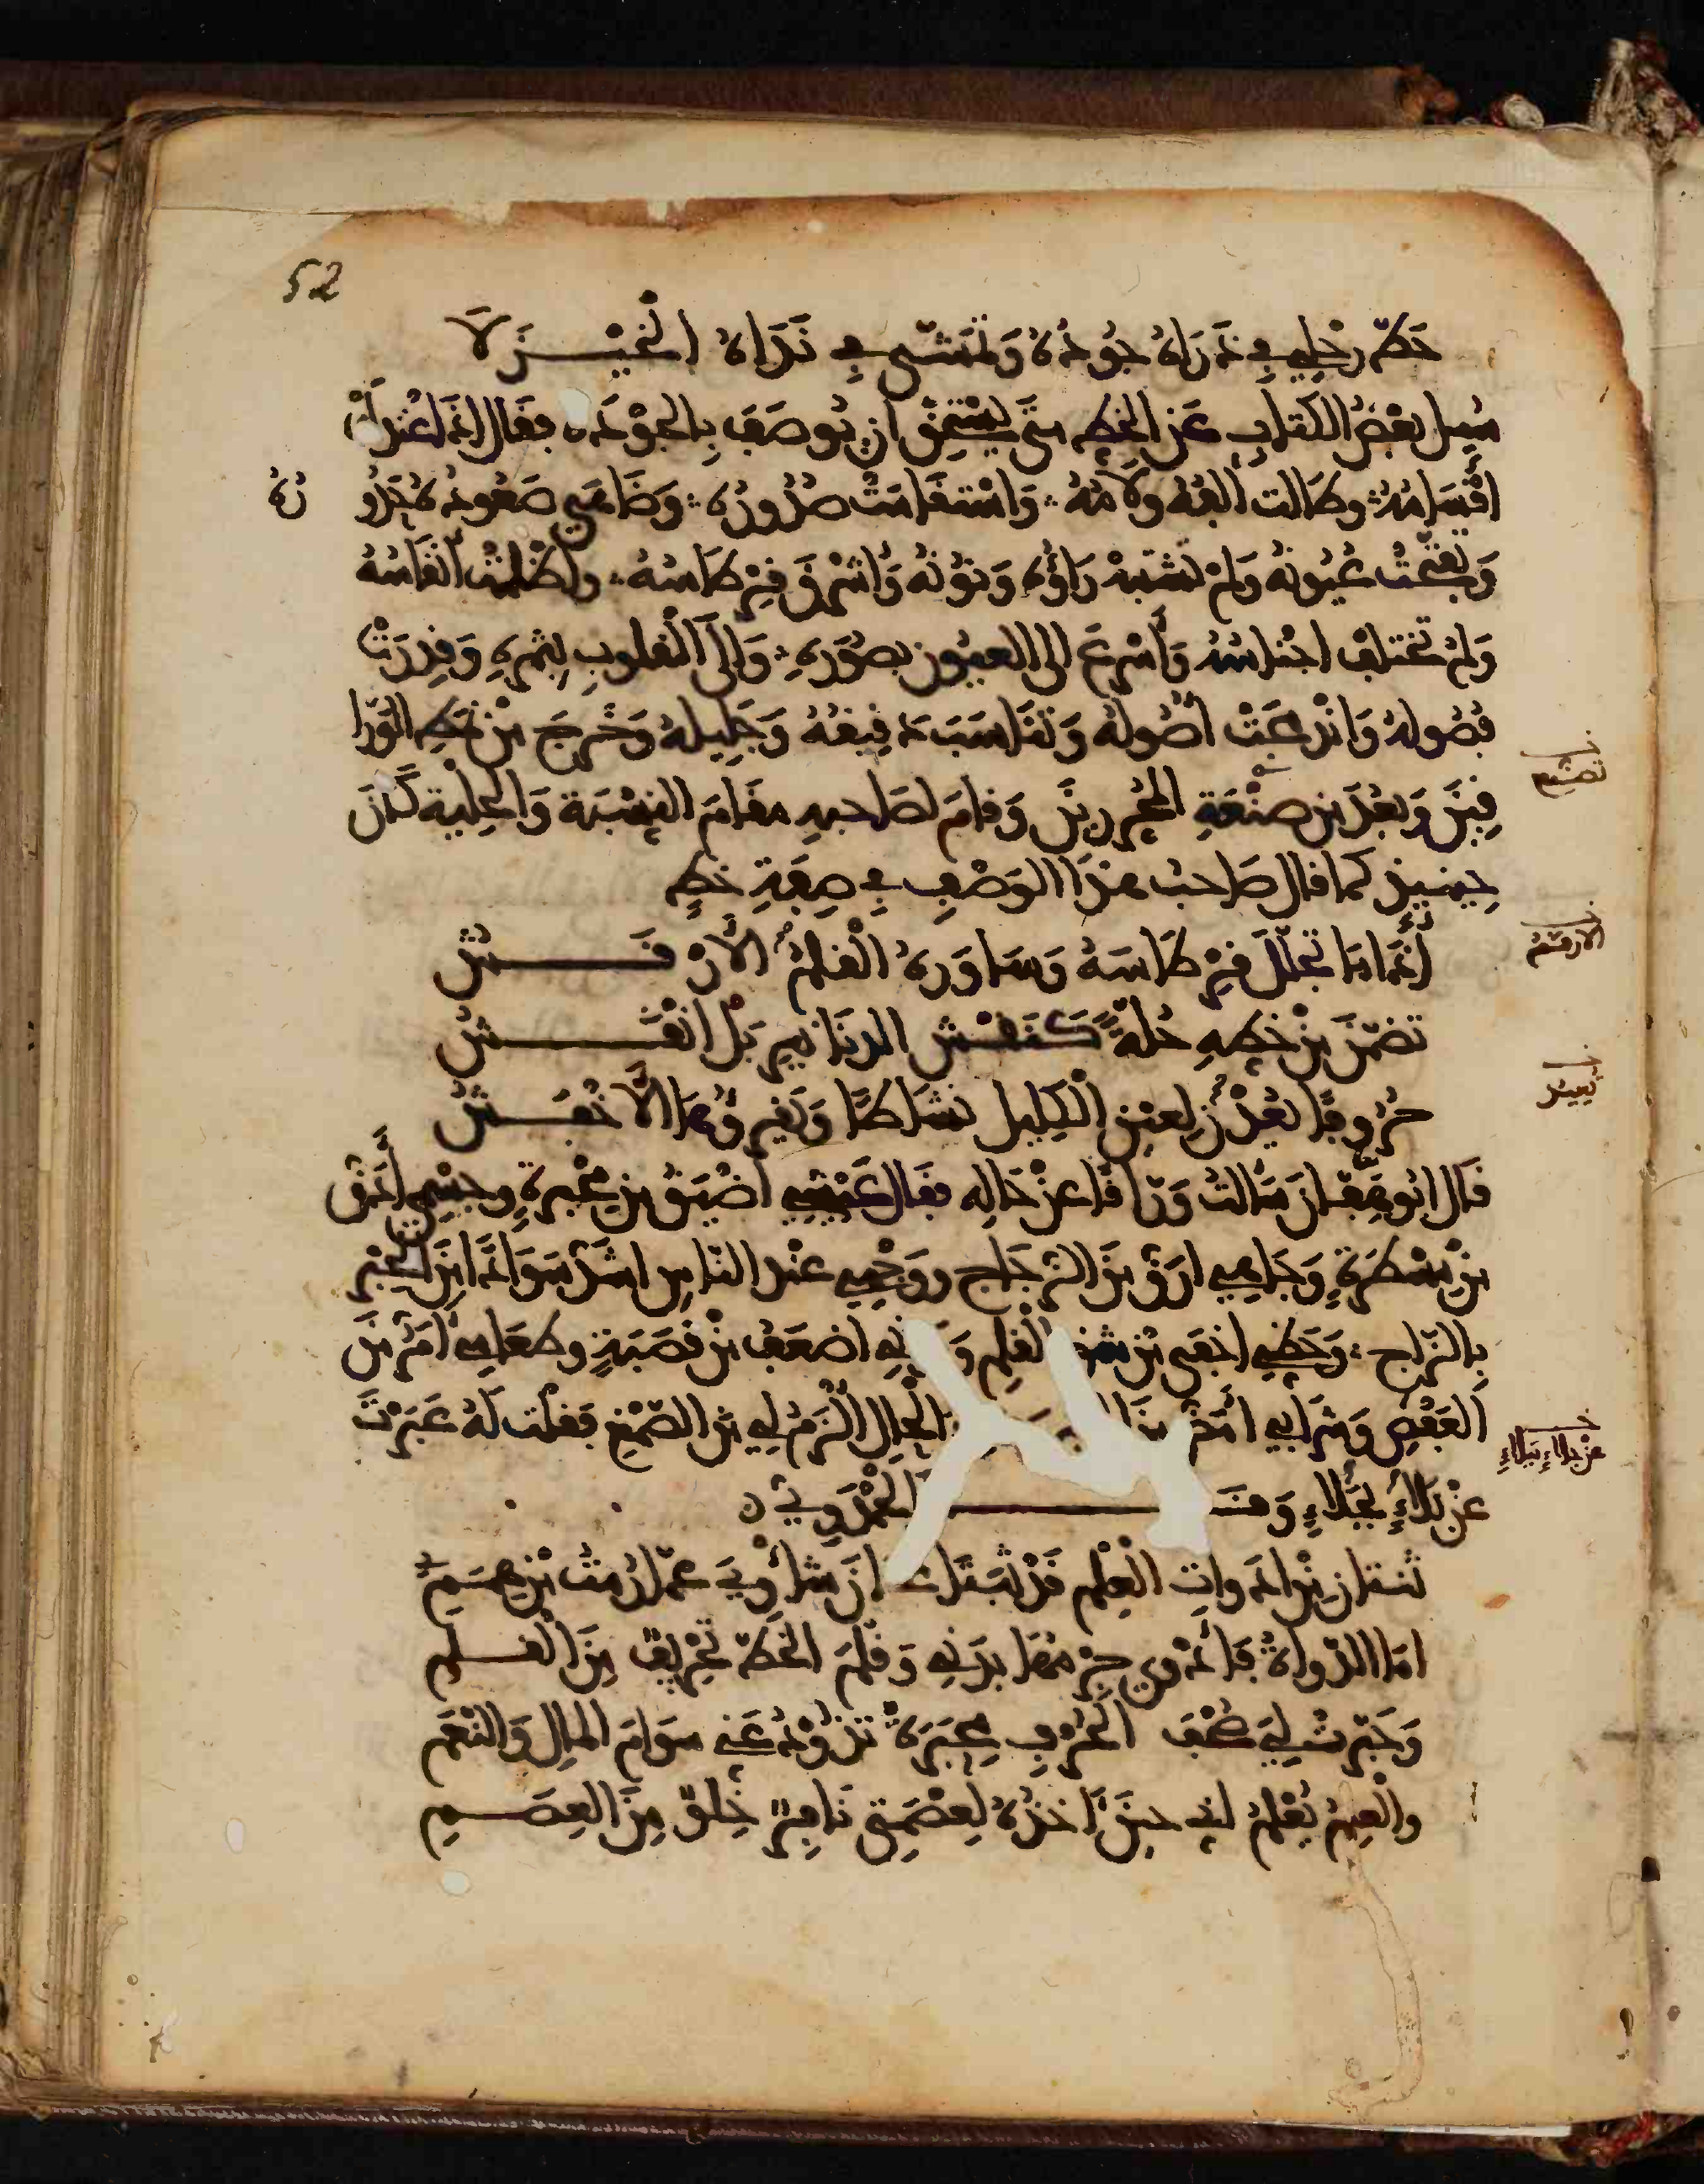 52
حَطَّ رَحْلِي فِي ذَرَاهُ جُودُهُ وَتَمَشَّى فِي نَدَاهُ الْخَيْزَلَا
سُئِلَ بَعْضُ الكُتَّابِ عَنِ الخَطِّ مَتَى يَسْتَحِقُّ أن يُوصَفَ بِالجَوْدَة فَقَالَ إِذَا اعْتَدَلَتْ
اقْسَامُهُ وطَالت ألِفُهُ ولَامُهُ وَاسْتَقَامَتْ سُطُورُهُ وَضَاهَى صَعُودُهُ حُدُورُهُ
وَتَفَتَّحَتْ عُيُونُهُ وَلَمْ تَشْتَبِهْ رَاؤُهُ وَنُونُهُ وَأشْرَقَ قِرْطَاسُهُ وَاظْلَمَتْ أَنْقَاسُهُ
وَلَمْ تَخْتَلِفْ اجْنَاسُهُ وَأَسْرَعَ إلى العيُون بِصُوَرِهِ وَإِلَى القُلُوبِ بِثَمَرِهِ وَقُدِّرَتْ
فُصُولُهُ وَانْدَمَجَتْ أُصُولُهُ وَتَنَاسَبَ دَقِيقُهُ وَجَلِيلُهُ وَخَرَجَ مِنْ نَمَطِ الوَرَّا
قِينَ وَبَعُدَ مِن صَنْعَةِ المُحَرِّرِينَ وَقَامَ لِصَاحِبِهِ مَقَامَ النِّسْبَةِ وَالحِلْيَةِ كَانَ
حِينَئِذٍ كَمَا قال صَاحبُ هَذَا الوَصْفِ فِي صِفَةِ خَطٍّ
إِذَا مَا تَجَلَّلَ قِرْطَاسَهُ وَسَاوَرَهُ الْقَلَمُ الأَرْقَشُ
تَضَمَّنَ مِنْ خَطِّهِ حُلَّةً كَنَقْشِ الدَّنَانِيرِ بَلْ انْقَشُ
حُرُوفًا تُعِيدُ لِعَيْنِ الْكَلِيلِ نَشَاطًا وَيَقْرَؤُهَا الأَخْفَشُ
قَالَ ابُو هِفَّانَ سَأَلْتُ وَرَّاقًا عَنْ حَالِهِ فَقَالَ عَيْشِي أَضْيَقُ مِن مِحْبَرَةٍ وجِسْمِي أَدَقُّ
مِنْ مِسْطَرَةٍ وَجَاهِي ارَقُّ مِنَ الزُّجَاجِ ووَجْهِي عِنْدَ النَّاسِ اشَدُّ سَوَادًا مِنَ الحِبْرِ
بِالزَّاجِ وَحَظِّي اخْفَى مِن شَقِّ الْقَلَمِ اضْعَفُ مِنْ قَصَبَةٍ وطَعَامِي أَمَرُّ مِنَ
العَفْصِ وَشَرَابِي الحَالِ ألْزَمُ لِي مِنَ الصَّمْغِ فَقلت لَهُ عَبَّرْتَ
عَنْ بَلَاءٍ بِبَلَاءٍ الحَمْدَوِيّ
ثِنْتَانِ مِنْ ادَوَاتِ الْعِلْمِ قَدْ ثَنَتَا شَأْوِيَ عَمَّا رُمْتُ مِنْ هِمَمِ
امَّا الدَّوَاةُ فَأَدْوَى حَمْلُهَا بَدَنِي وَقَلَّمَ الخَطَّ تَحْرِيفٌ مِنَ القَلَمِ
وَحَبَّرَتْ لِيَ صُحْفَ الحُرْفِ مِحْبَرَةٌ تَذُودُ عَنِّي سَوَامَ المَالِ وَالنَّعَمِ
والْعِلْمُ يَعْلَمُ أنِّي حِينَ آخُذُهُ لِعِصْمَتِي نَافِرٌ خِلْوٌ مِنَ العِصَمِ
الارقمُ
عَنْ بلاءٍ ببلاءٍ